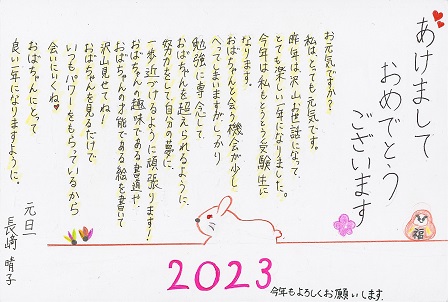 あけまして
おめでとう
ございます
お元気ですか?
私は、とても元気です。
昨年は沢山お世話になって、
とても楽しい一年になりました。
今年は私もとうとう受験生に
なります!
おばちゃんと会う機会が少し
へってしまいますが、しっかり
勉強に専念して、
おばちゃんを超えられるように、
努力をして自分の夢に、
一歩近づけるように頑張ります!
おばちゃんの趣味である書道や、
おばちゃんの才能である絵を書いて
沢山見せてね!
おばちゃんを見るだけで
いつもパワーをもらっているから
会いにいくね
おばちゃんにとって
良い一年になりますように。
元旦
長崎 晴子
福
2023
今年もよろしくお願いします